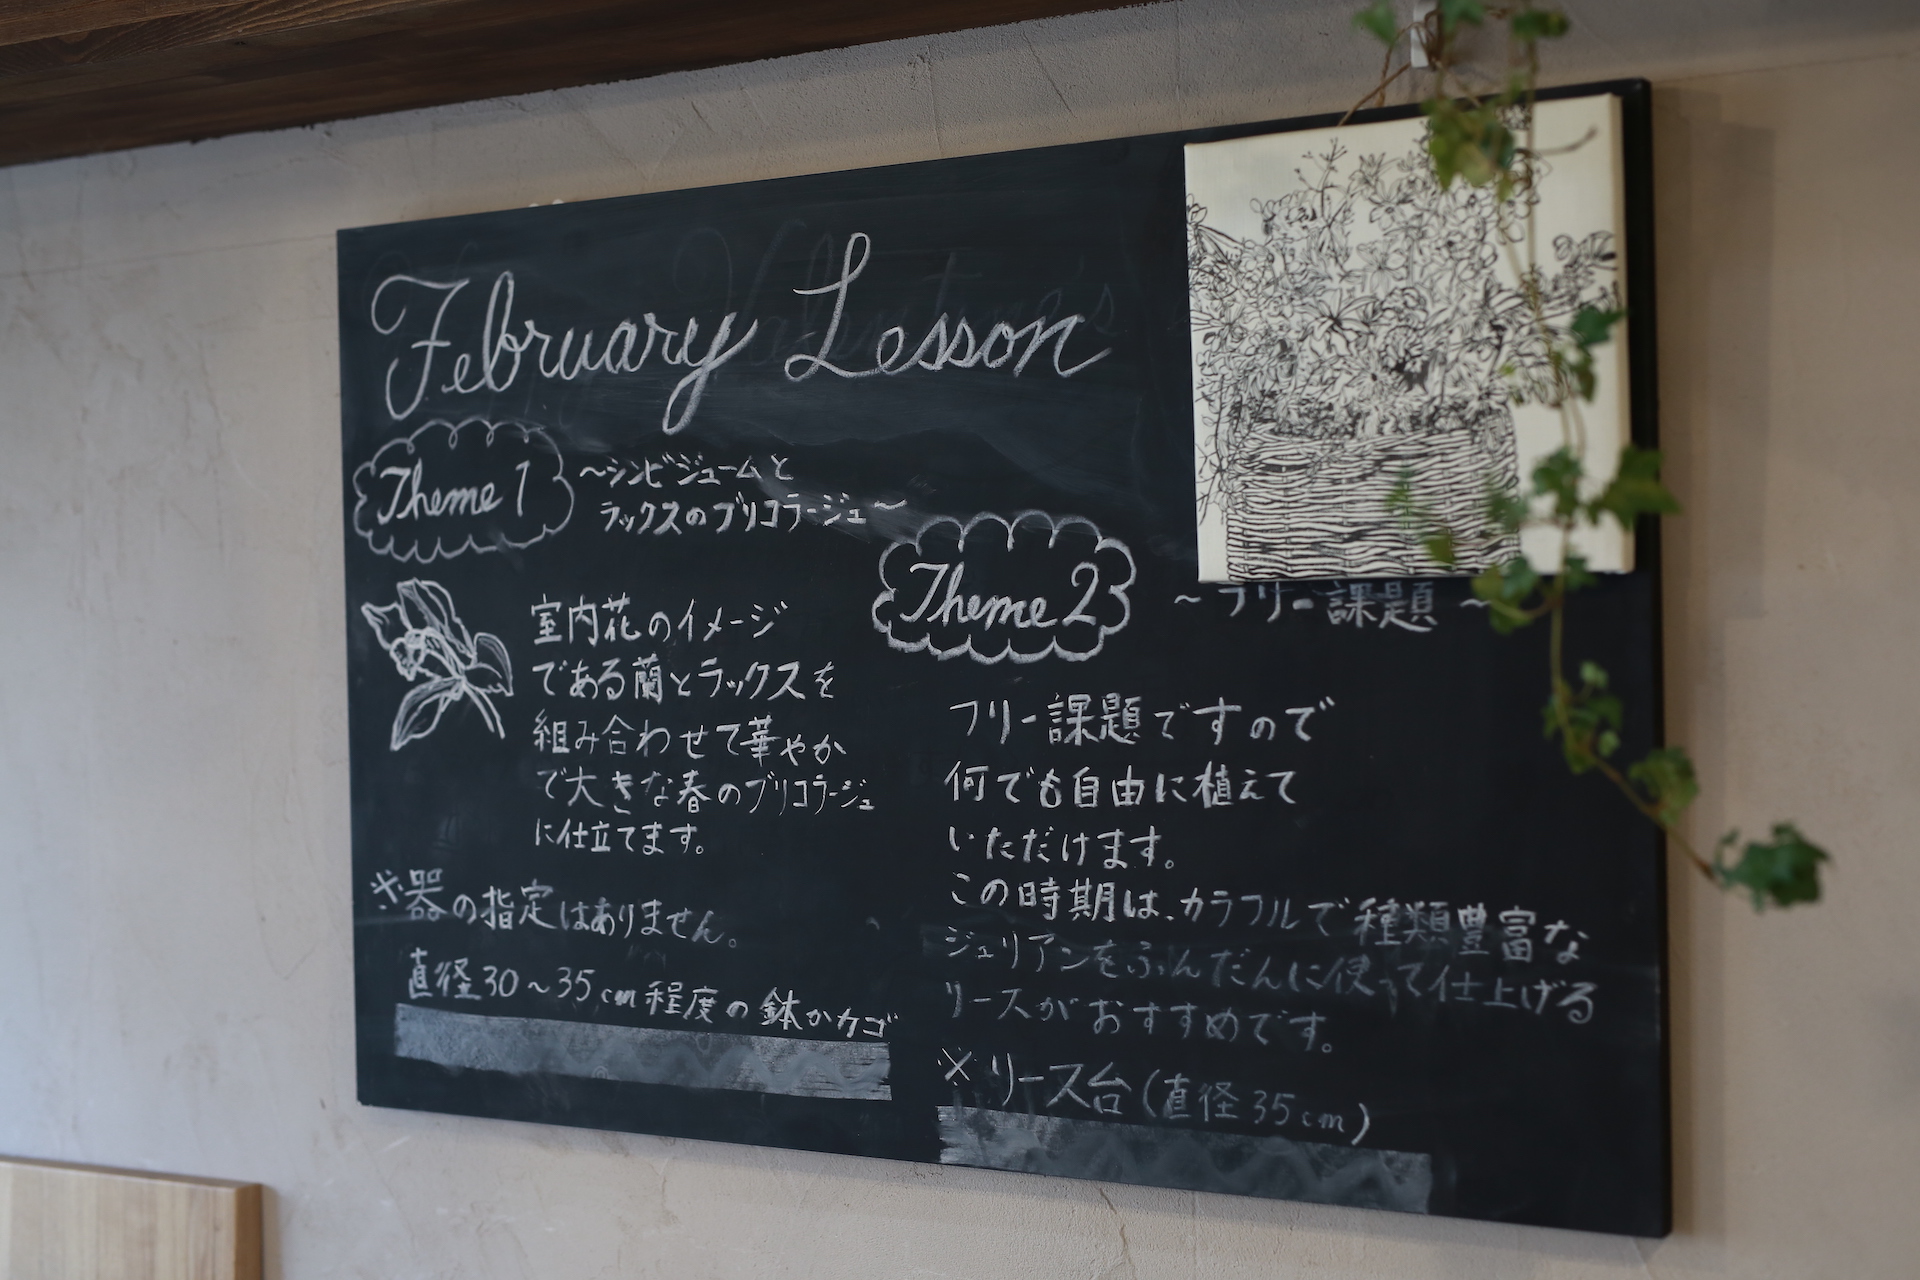 February Lesson
Theme 1
～シンビジュームと
ラックスのブリコラージュ～
室内花のイメージ
である蘭とラックスを
組み合わせて華やか
で大きな春のブリコラージュ
に仕立てます。
※器の指定はありません。
直径30～35cm程度の鉢かカゴ
Theme 2
～フリー課題～
フリー課題ですので
何でも自由に植えて
いただけます。
この時期は、カラフルで種類豊富な
ジュリアンをふんだんに使って仕上げる
リースがおすすめです。
※リース台(直径35cm)